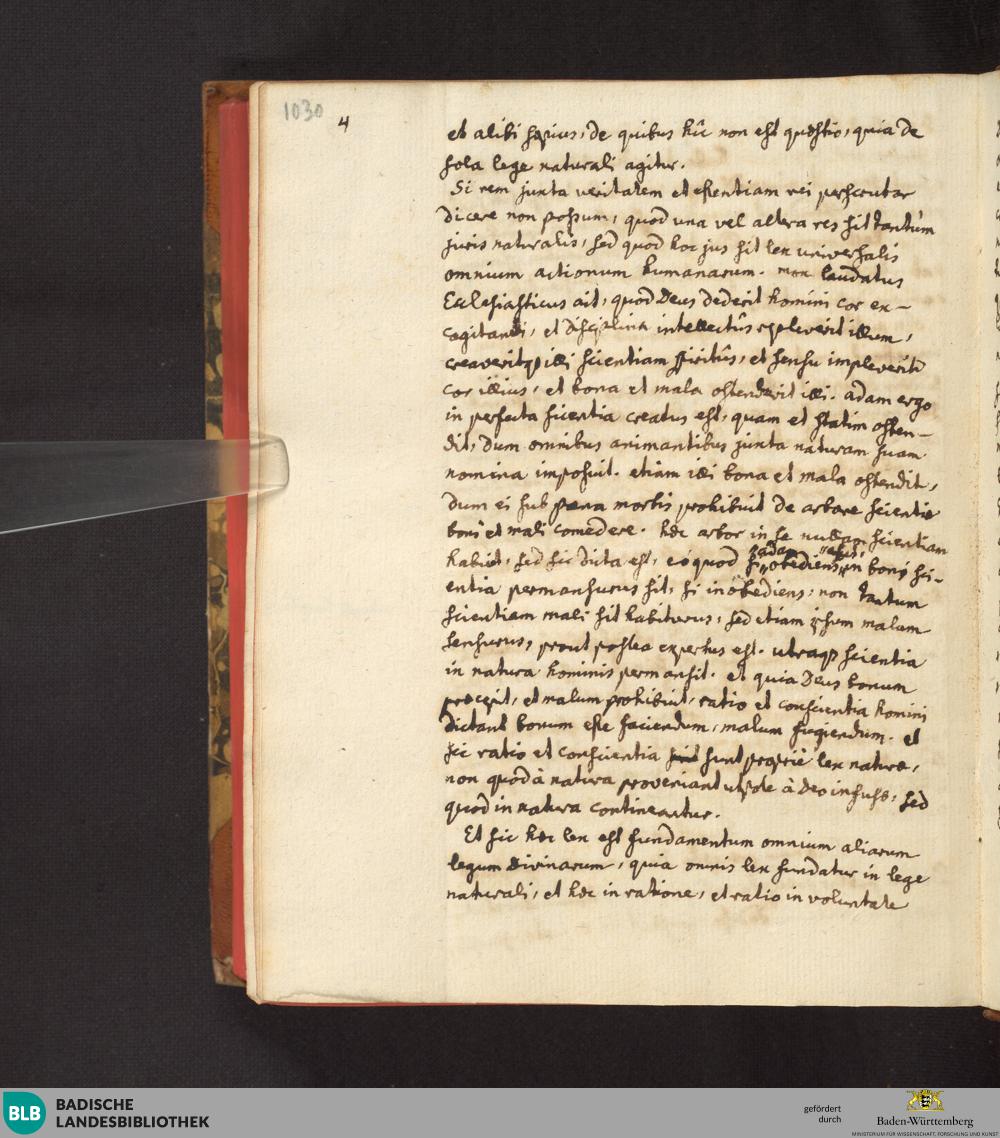 1030
4
et alibi sæpius, de quibus hîc non est quæstio, quia de
sola lege naturali agitur.
Si rem juxta veritatem et essentiam rei perscrutor
dicere non possum, quod una vel altera res sit tantùm
juris naturalis, sed quod hoc jus sit lex universalis
omnium actionum humanarum. mox laudatus
Ecclesiasticus ait, quod Deus dederit homini cor ex-
cogitandi, et disciplina intellectûs repleverit illum,
creaveritq illi scientiam spiritûs, et sensu impleverit
cor illius, et bona et mala ostenderit illi. adam ergo
in perfecta scientia creatus est, quam et statim osten-
dit, dum omnibus animantibus juxta naturam suam
nomina imposuit. etiam illi bona et mala ostendit,
dum ei sub pœna mortis prohibuit de arbore scientiæ
boni et mali comedere. hæc arbor in se nullam scientiam
habuit, sed sic dicta est, eò quod si adam obediens in boni sci-
entia permansurus sit, si inobediens, non tantum
scientiam mali sit habiturus, sed etiam ipsum malum
sensurus, prout postea expertus est. utraq scientia
in natura hominis permansit. et quia Deus bonum
præcepit, et malum prohibuit, ratio et conscientia homini
dictant bonum esse faciendum, malum fugiendum. et
sic ratio et conscientia sunt propriè lex naturæ,
non quod à natura proveniant utpote à Deo infusæ, sed
quod in natura contineantur.
Et sic hæc lex est fundamentum omnium aliarum
legum divinarum, quia omnis lex fundatur in lege
naturali, et hæc in ratione, et ratio in voluntate
BLB
BADISCHE
LANDESBIBLIOTHEK
gefördert
durch
Baden-Württemberg
MINISTERIUM FÜR WISSENSCHAFT, FORSCHUNG UND KUNST